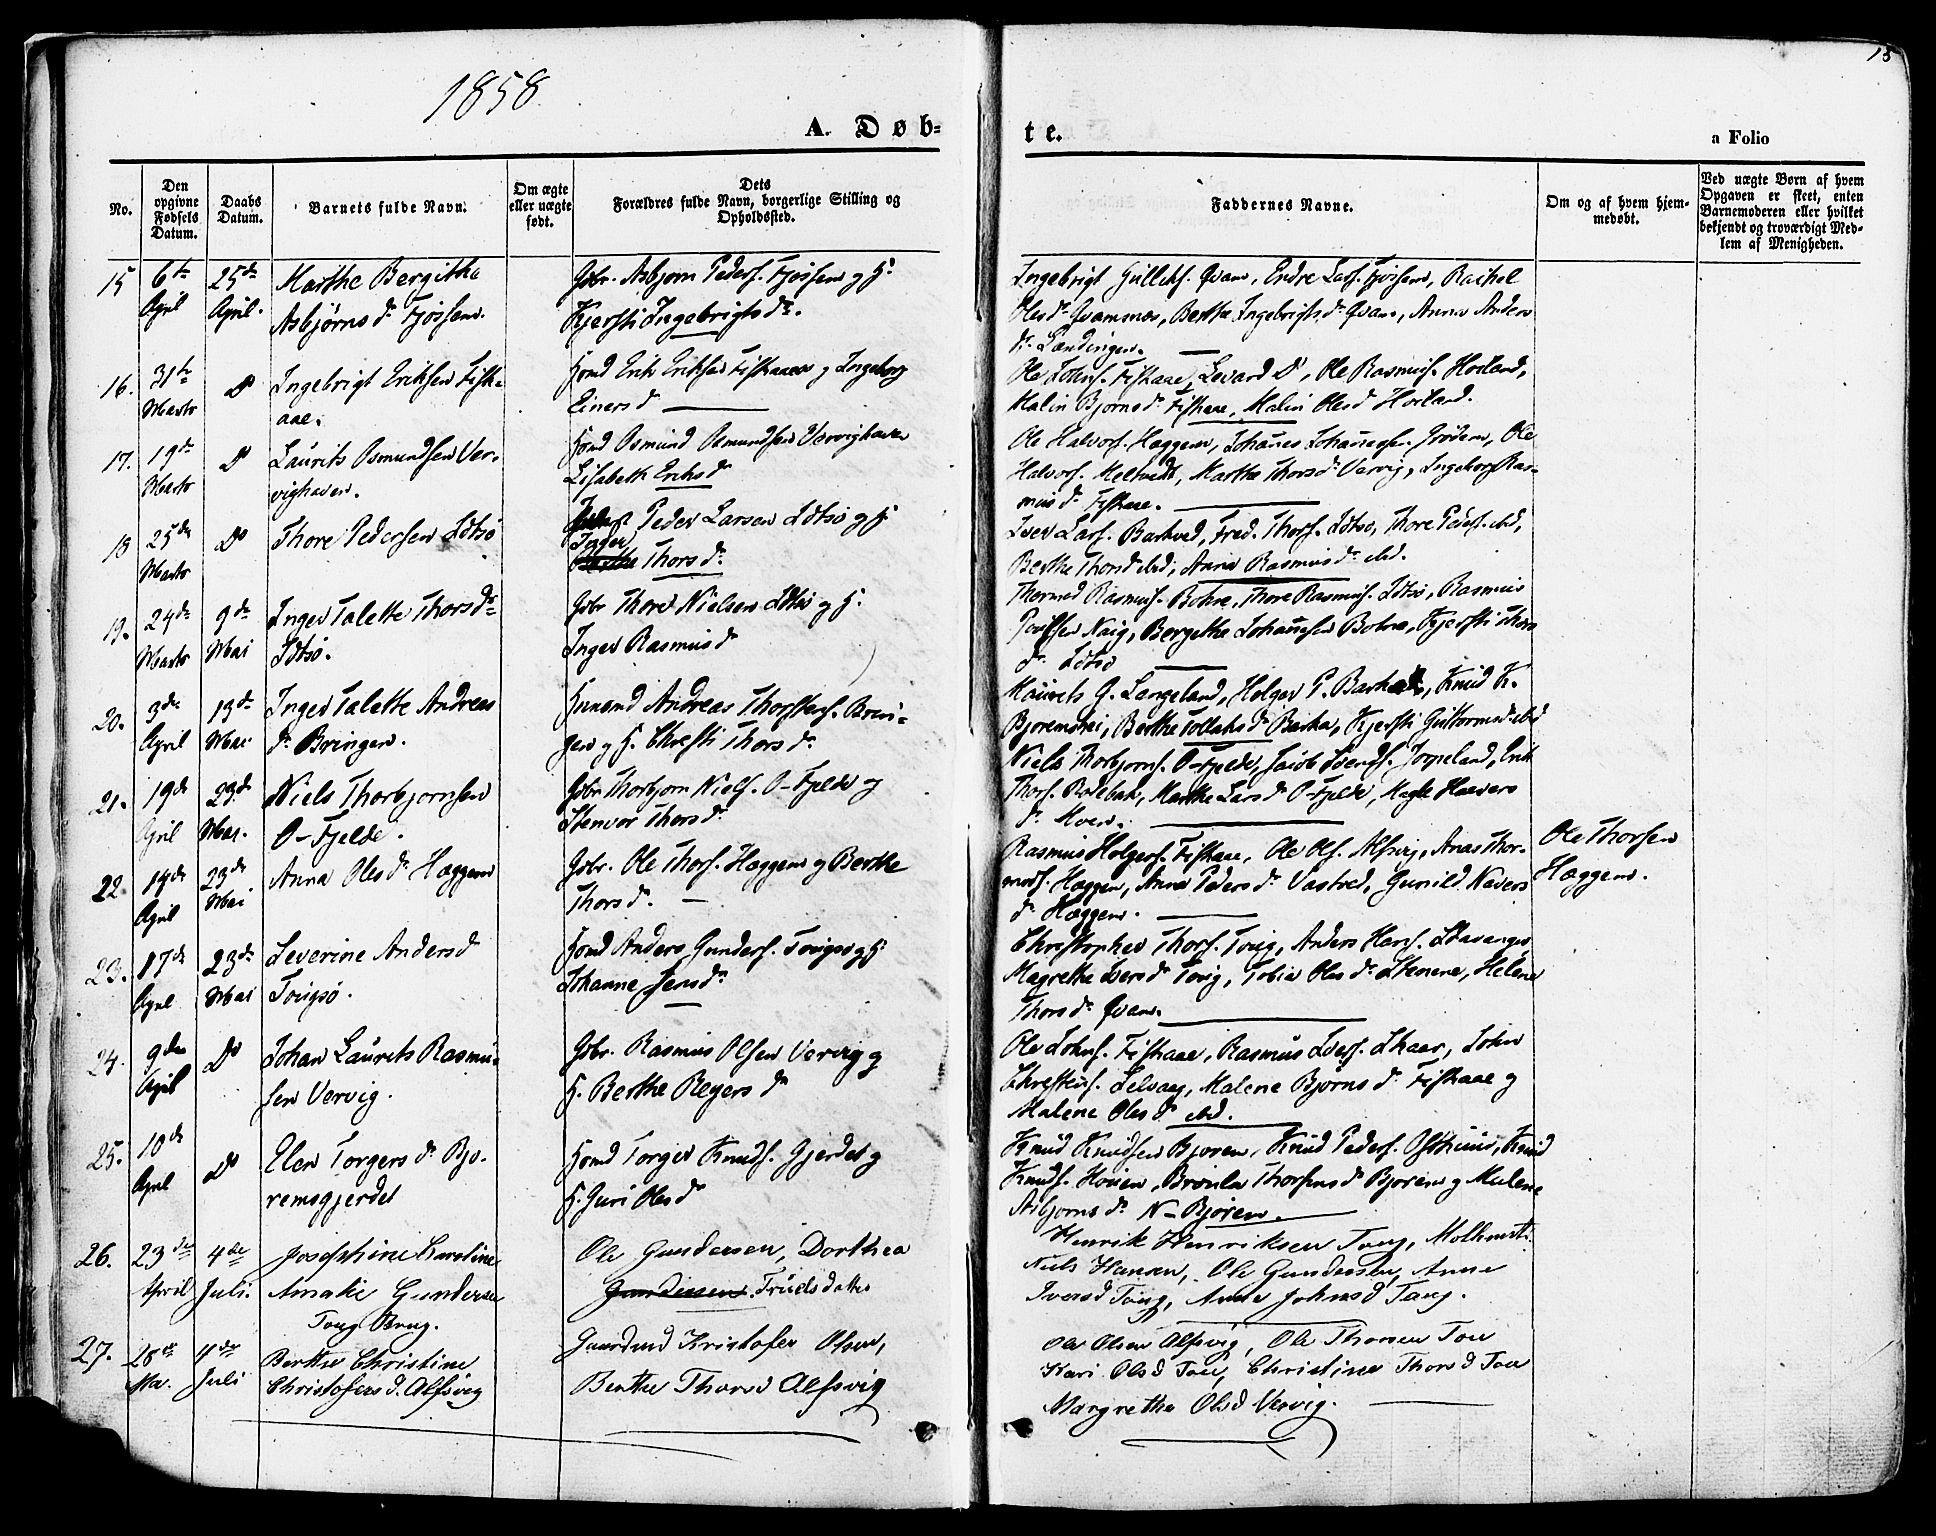 1858
15
A. Døb=
te.
a Folio
No.
Den opgivne Fødsels Datum.
Daabs Datum.
Barnets fulde Navn.
Om ægte eller uægte født.
Dets
Forældres fulde Navn, borgerlige Stilling og
Opholdssted.
Faddernes Navne.
Om og af hvem hjem-
medøbt.
Ved uægte Børn af hvem
Opgaven er skeet, enten
Barnemoderen eller hvilket
bekjendt og troværdigt Med-
lem af Menigheden.
15 6te April 25de April. Marthe Bergitha
Asbjørns dr Fjøssene.
Gbr. Asbjørn Peders. Fjøssene og H.
Kjersti Ingebrigts dr.
Ingebrigt Gulleks. Qvam, Endre Lars. Fjøssene, Rachel
Oles dr Qvamnæs, Berthe Ingebrigts dr Qvam, Anna Anders
dr
16. 31te Marts Do Ingebrigt Eriksen Fisk-
aae.
Erik Eriksen Fiskaaen og Ingeborg
Einers d
Ole Johns. Fiskaae, Do, Ole Rasmus. Hovland,
Malin Bjørns dr Fiskaae, Malin Olesd Hovland.
17. 19de Marts Do Laurits Osmundsen Ver-
vighaven.
Osmund Osmundsen Vervighaven
Lisabeth Eriks dr
Ole Halvors. Heggem, Johanes Johanesen, Ole
Halvors. Marthe Thors dr Vervig, Ingeborg Ras-
mus dr Fiskaae.
18 25de Marts Do Thore Pedersen Idtsø
Peder Larsen Idtsø og H.
Inger
Thors dr.
Iver Lars. Barkved, Fred. Thors. Idtsø, Thore Peders. ibd,
Berthe Thorsd ibd, Anna Rasmus dr ibd.
19. 24de Marts 9de Mai Inger Talette Thors dr
Idtsø.
Gbr Thore Nielsen Idtsø og H.
Inger Rasmus d
Thormod Rasmus. Bohre, Thore Rasmus. Idtsø, Rasmus
Poulsen Naig, Bergethe Johannesen Bohre, Kjersti Thors
dr. Idtsø
20. 3de April 13de Mai Inger Talette Andreas
dr Bringen.
Andreas Thorsteins. Brin-
gen og H. Christi Thors dr.
Maurets G. Langeland, Holger P. Barka, Knud K.
Berthe Tollaks dr Barka, Kjersti Guttorms d ibd
21. 19de April 23de Mai. Niels Thorbjørnsen
O-Fjelde.
Gbr Thorbjørn Niels. O-Fjelde og
Stenvor Thors dr
Niels Thorbjørns. O-Fjelde, Jacob Svends. Jørpeland, Erik
Thors. Marthe Lars dr O-Fjelde,
dr Moen.
22. 14de April 23de Mai Anna Oles dr Heggem
Gbr. Ole Thors. Heggem og Berthe
Thors d.
Rasmus Holgers. Fiskaae, Ole Ols. Alsvig, Thor-
mods. Heggem, Anna Peders dr Vastved, Gunild
dr Heggem.
Ole Thorsen
Heggem.
23. 17de April 23de Mai Severine Anders d
Tougsø.
Anders Gunders. Tougsø og H.
Johanne Jens dr.
Christopher Thors. Toug, Anders Hans. Stavanger
Magrethe Ivers dr Toug, Tobia Oles dr Helene
Thors dr Qvam.
24. 9de April Do Johan Laurets Rasmu-
sen Vervig.
Gbr. Rasmus Olsen Vervig og
H. Berthe Reyers dr
Ole Johns. Fiskaae, Rasmus John
Malene Bjørns dr Fiskaae og
Malene Oles dr ibd.
25. 10de April Do Elen Torgers dr Bjø-
remsgjerdet
Torger Knuds. Gjerdet og
H. Guri Olesd
Knud Knudsen Bjøren, Knud Peders. Knud
Knuds. Thorsens d Bjøren og Malene
Asbjørns dr N-Bjøren.
26. 23de April 4de Juli. Josephine Karoline
Amalie Gundersen
Toug Brug.
Ole Gundersen, Dorthea
Gundersen Truelsdatter
Henrik Henriksen Toug,
Niels Hansen, Ole Gundersen, Anne
Iversd Toug, Anne Johnsd Toug.
27. 28de Ma. 4de Juli Berthe Christine
Christofers d. Alfsvig
Gaardmd Kristofer Olsen,
Berthe Thorsd Alfsvig
Ole Olsen Alfsvig, Ole Thorsen Tou
Kari Olsd Tou, Christine Thorsd Tou
Margrethe Olsd Vervig.